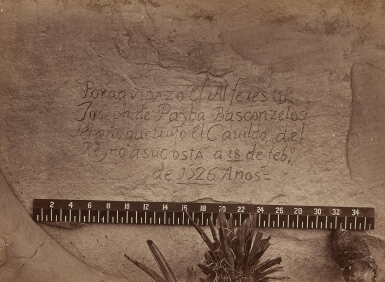 Por aqui pazo el Alferes Dn
Joseph de Payba Basconzelos
el año que trujo el Cauildo del
Reyno a su costa a 18 de febo
de 1726 Años=
2 4 6 8 10 12 14 16 18 20 22 24 26 28 30 32 34